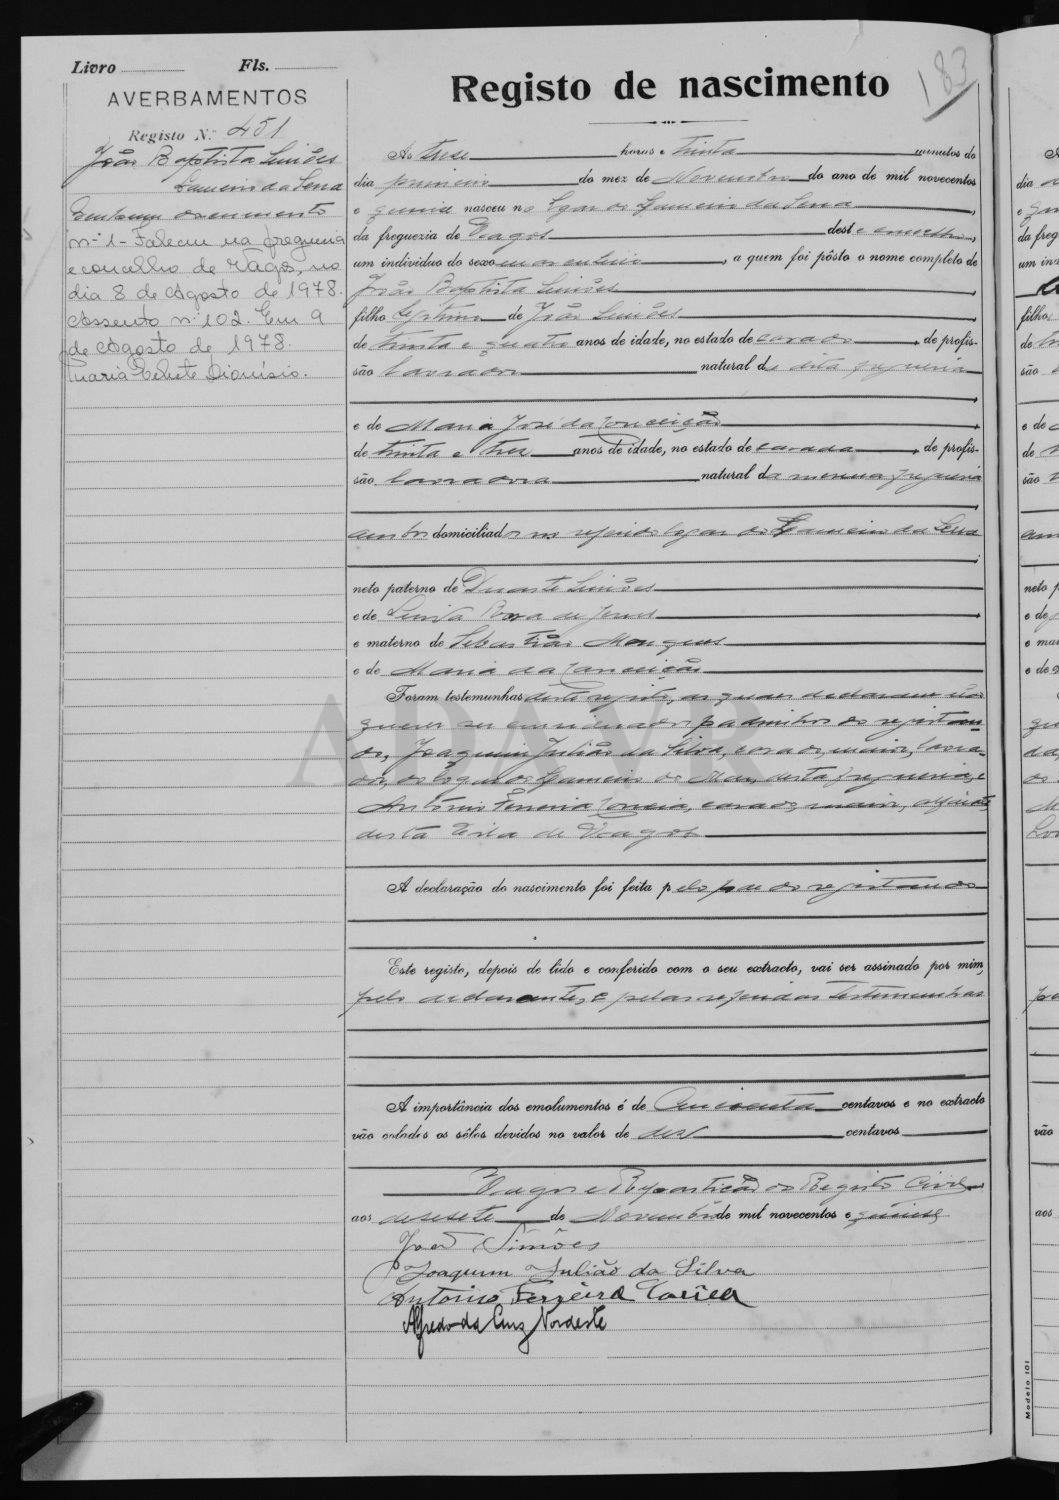 183
Livro Fls.
AVERBAMENTOS
Registo N.º 451
João Baptista Simões
Lameiro da Serra
Nenhum documento
nº 1 - Faleceu na freguesia
e concelho de Vagos, no
dia 8 de Agosto de 1978.
Assento nº 102. Em 9
de Agosto de 1978.
Maria Odete Dionísio.
Registo de nascimento
As trese horas e trinta minutos do
dia primeiro do mez de Novembro do ano de mil novecentos
e quinse nasceu no logar do Lameiro da Serra,
da freguezia de Vagos deste concelho,
um individuo do sexo masculino, a quem foi pôsto o nome completo de
João Baptista Simões,
filho legitimo de João Simões,
de trinta e quatro anos de idade, no estado de casado, de profis-
são lavrador natural da dita freguesia
e de Maria José da Conceição,
de trinta e tres anos de idade, no estado de casada, de profis-
são lavradora natural da mesma freguesia
ambos domiciliados no referido logar do Lameiro da Serra
neto paterno de Duarte Simões
e de Luisa Rosa de Jesus
e materno de Sebastião Marques
e de Maria da Conceição
Foram testemunhas deste registo, as quaes declararam não
querer ser considerados padrinhos do registan-
do, Joaquim Julião da Silva, casado, maior, lavra-
dor, do logar do Lameiro do Mar, desta freguesia, e
António Ferreira Correia, casado, maior, alfaiate,
desta vila de Vagos
A declaração do nascimento foi feita pelo pae do registando
Este registo, depois de lido e conferido com o seu extracto, vai ser assinado por mim,
pelo declarante, e pelas referidas testemunhas
A importância dos emolumentos é de cincoenta centavos e no extracto
vão colados os sêlos devidos no valor de dez centavos
Vagos e Repartição do Registo Civil
aos desesete de Novembro de mil novecentos e quinse
João Simões
Joaquim Julião da Silva
António Ferreira Correia
Alfredo da Cruz Nordeste
ADAVR
Modelo 101